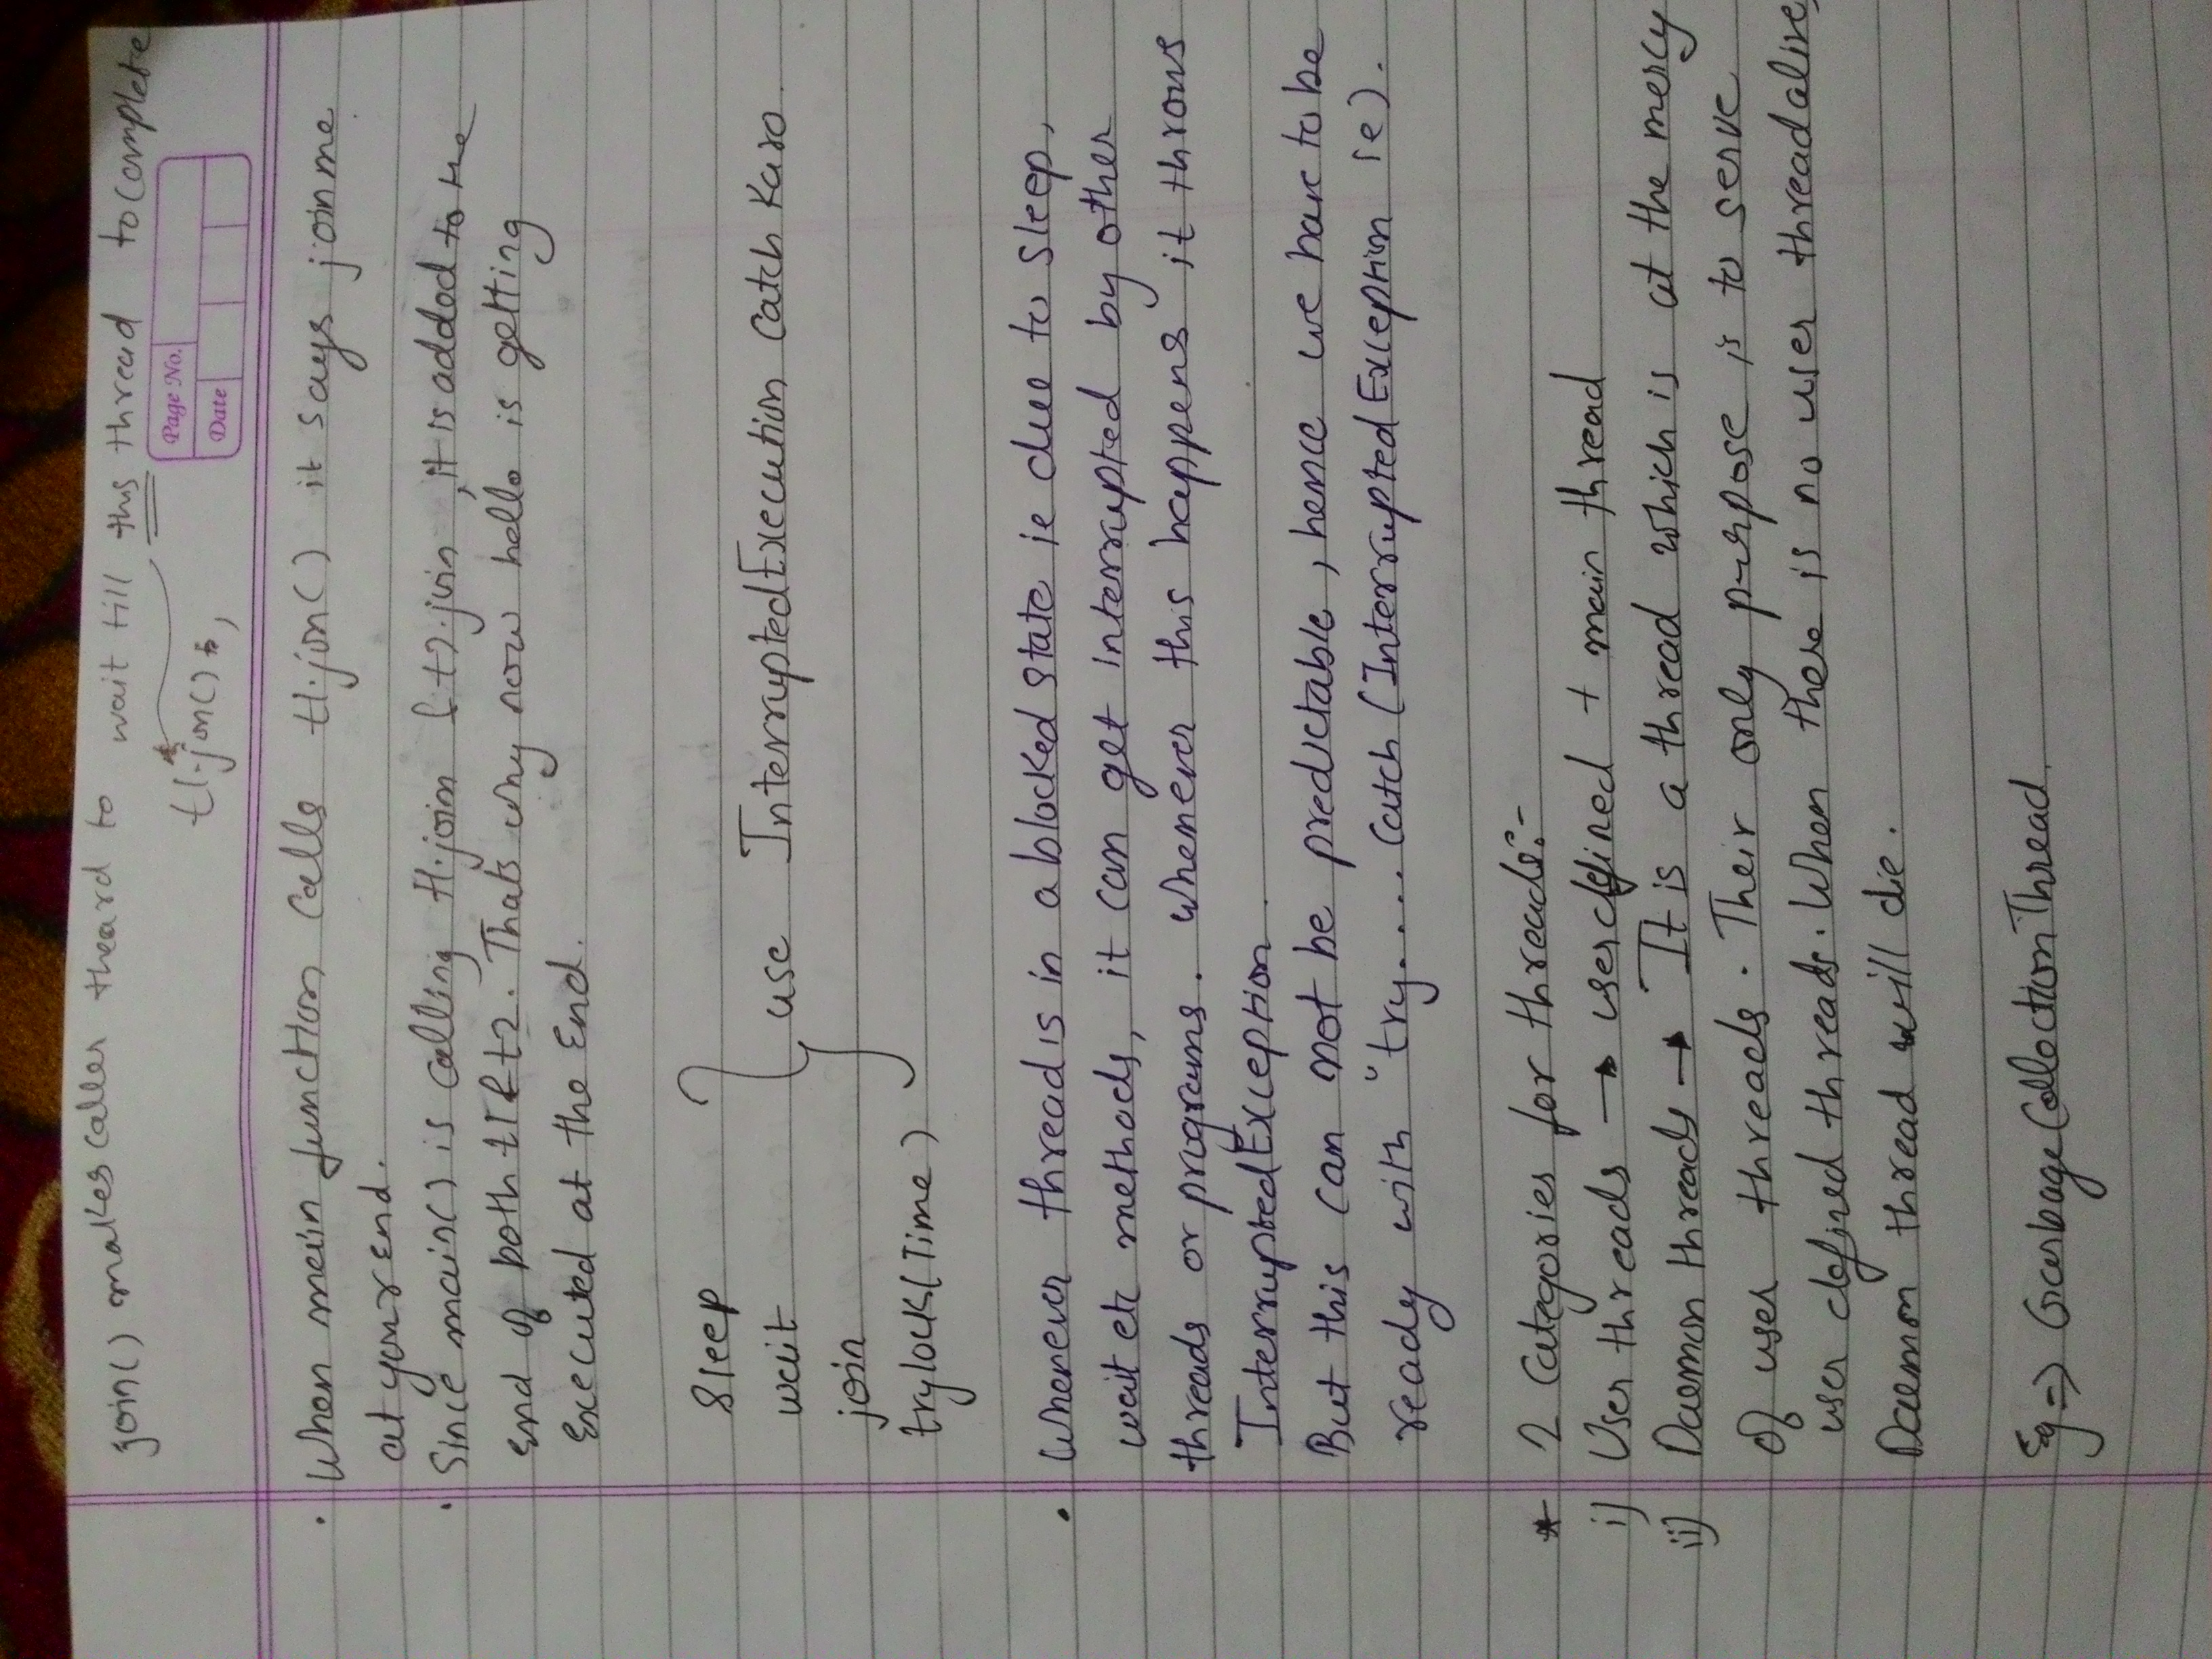 join() makes caller theard to wait till this thread to complete
t1.jon();
Page No.
Date
. When main function calls t1.jon() it says join me
at your end.
. Since main() is calling t1.join & t2.join, it is added to the
end of both t1 & t2. Thats why now hello is getting
executed at the End.
Sleep
wait
join
trylock(Time)
use InterruptedExecution Catch Karo
. Whenever thread is in a blocked state ie due to sleep,
wait etc methods, it can get interrupted by other
threads or programs. Whenever this happens it throws
InterruptedException.
But this can not be predictable, hence we have to be
ready with "try.... Catch (InterruptedException ie).
* 2 Categories for threads:-
i) User threads → user defined + main thread
ii) Daemon threads → It is a thread which is at the mercy
of user threads. Their only purpose is to serve
user defined threads. When there is no user thread alive,
Daemon thread will die.
Eg => Garbage Collection Thread.